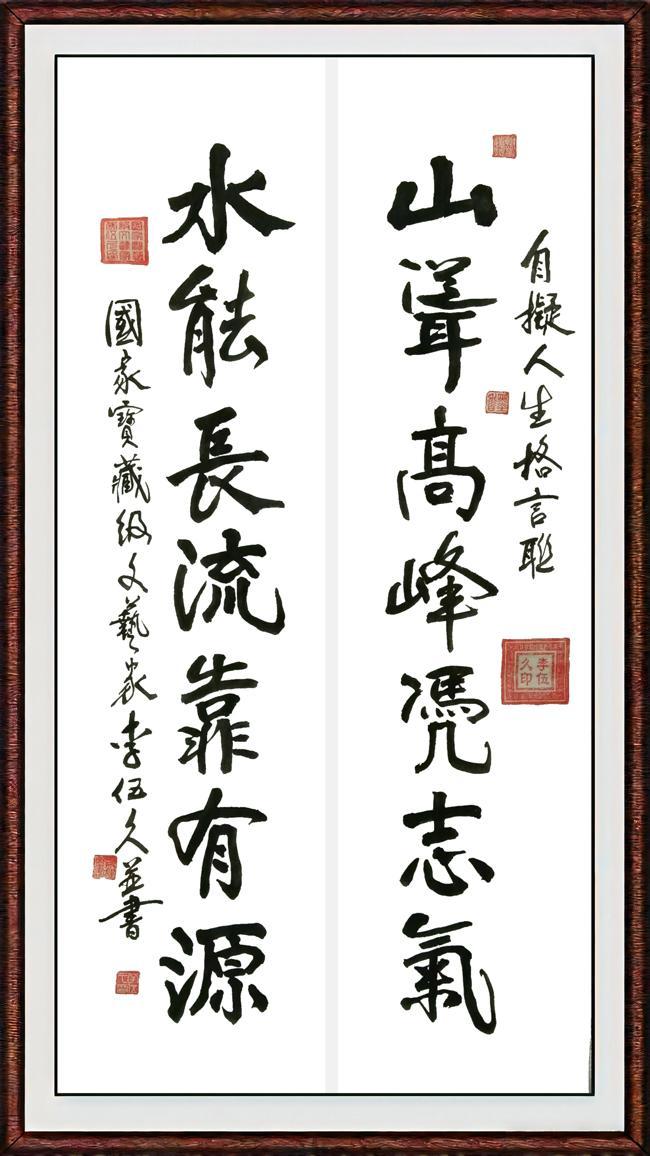 自擬人生格言聯
山聳高峰憑志氣
水能長流靠有源
國家寶藏級文藝家李伍久並書
李伍久印